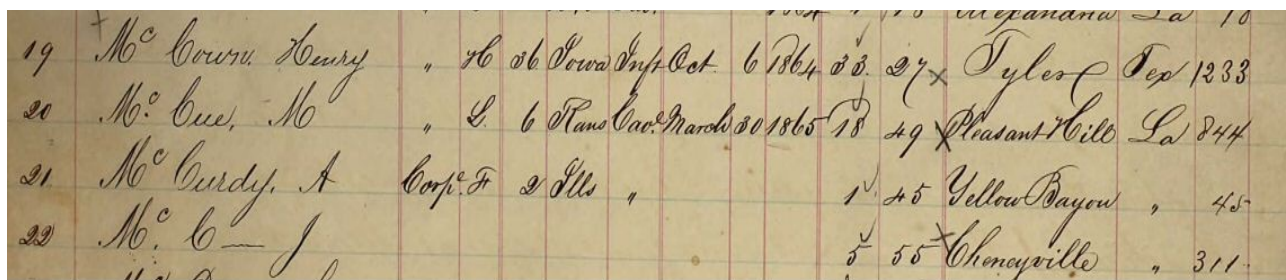 1864 1 Alexandria La 10
19 Mc Cown, Henry " H 36 Iowa Inft Oct. 6 1864 33. 27 x Tyler Tex 1233
20 Mc. Cue, M " L. 6 Kans Cav. March 30 1865 18 49 x Pleasant Hill La 844
21 Mc Curdy, A Corpl. F 2 Ills " 1 45 Yellow Bayou " 45
22 Mc. C— J 5 55 x Cheneyville " 311